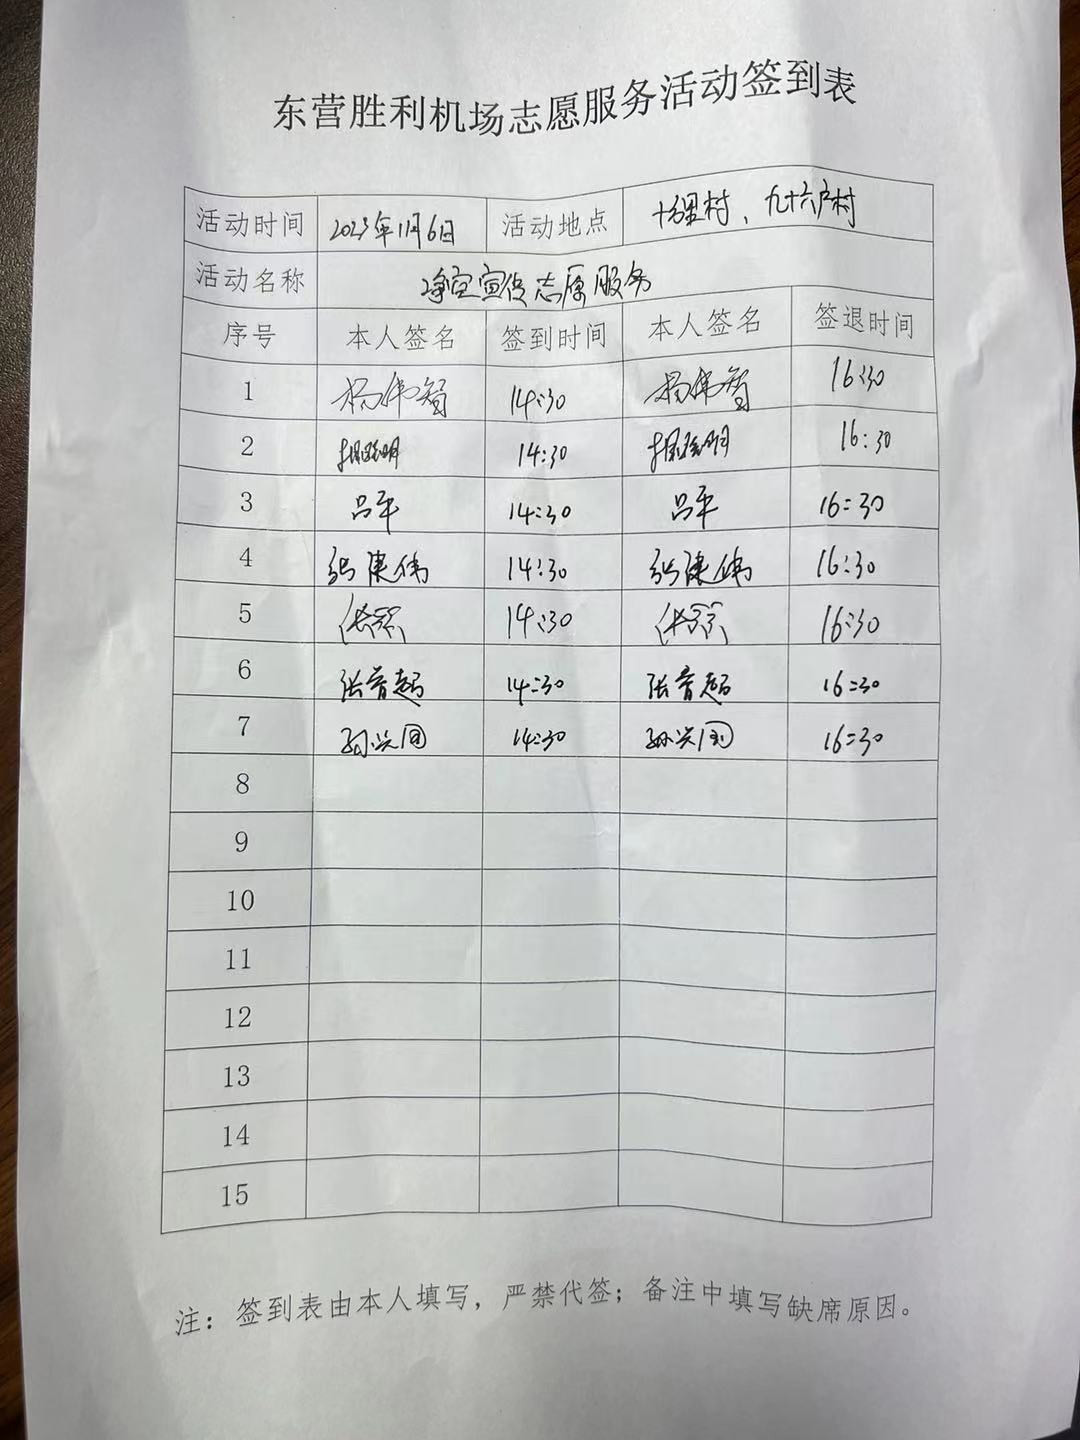 东营胜利机场志愿服务活动签到表
活动时间 2023年11月6日 活动地点 十里村、九十六户村
活动名称 净空宣传志愿服务
序号 本人签名 签到时间 本人签名 签退时间
1 杨伟智 14:30 杨伟智 16:30
2 14:30 16:30
3 吕平 14:30 吕平 16:30
4 张建伟 14:30 张建伟 16:30
5 14:30 16:30
6 张晋超 14:30 张晋超 16:30
7 孙兴国 14:30 孙兴国 16:30
8
9
10
11
12
13
14
15
注：签到表由本人填写，严禁代签；备注中填写缺席原因。